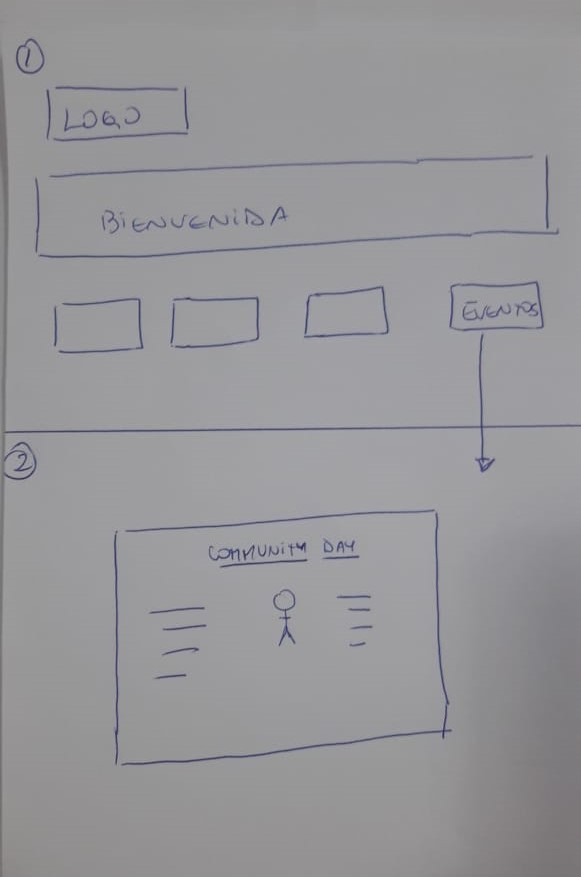 1
LOGO
BIENVENIDA
EVENTOS
2
COMMUNITY DAY